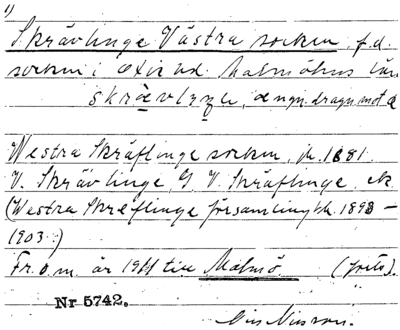 1)
Skrävlinge Västra socken, f.d.
socken i Oxie hd. Malmöhus län
skrävlıŋe, æ ngn. dragn. mot a
Westra Skräflinge socken, jb. 1881.
V. Skräflinge, G V. Skräflinge, ek
(Westra Skreflinge församling kb. 1898 –
1903.)
Fr. o. m. år 1911 till Malmö. (forts).
Nr 5742.
Nilsson.